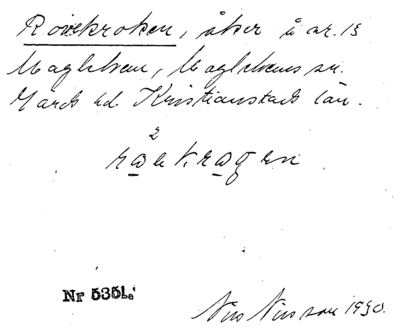 Rovekroken, åker å nr. 13
Maglehem, Maglehems sn.
Gärds hd. Kristianstads län.
2
Nr 5351.
Nils Nilsson 1930.